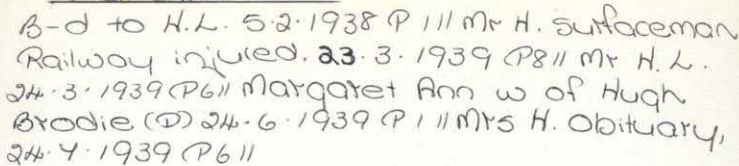 B-d to H.L. 5.2.1938 P 1 // Mr H. surfaceman
Railway injured. 23.3.1939 (P8 // Mr H.L.
24.3.1939 (P6 // Margaret Ann w of Hugh
Brodie (D) 24.6.1939 P 1 // Mrs H. Obituary,
24.4.1939 (P6 //